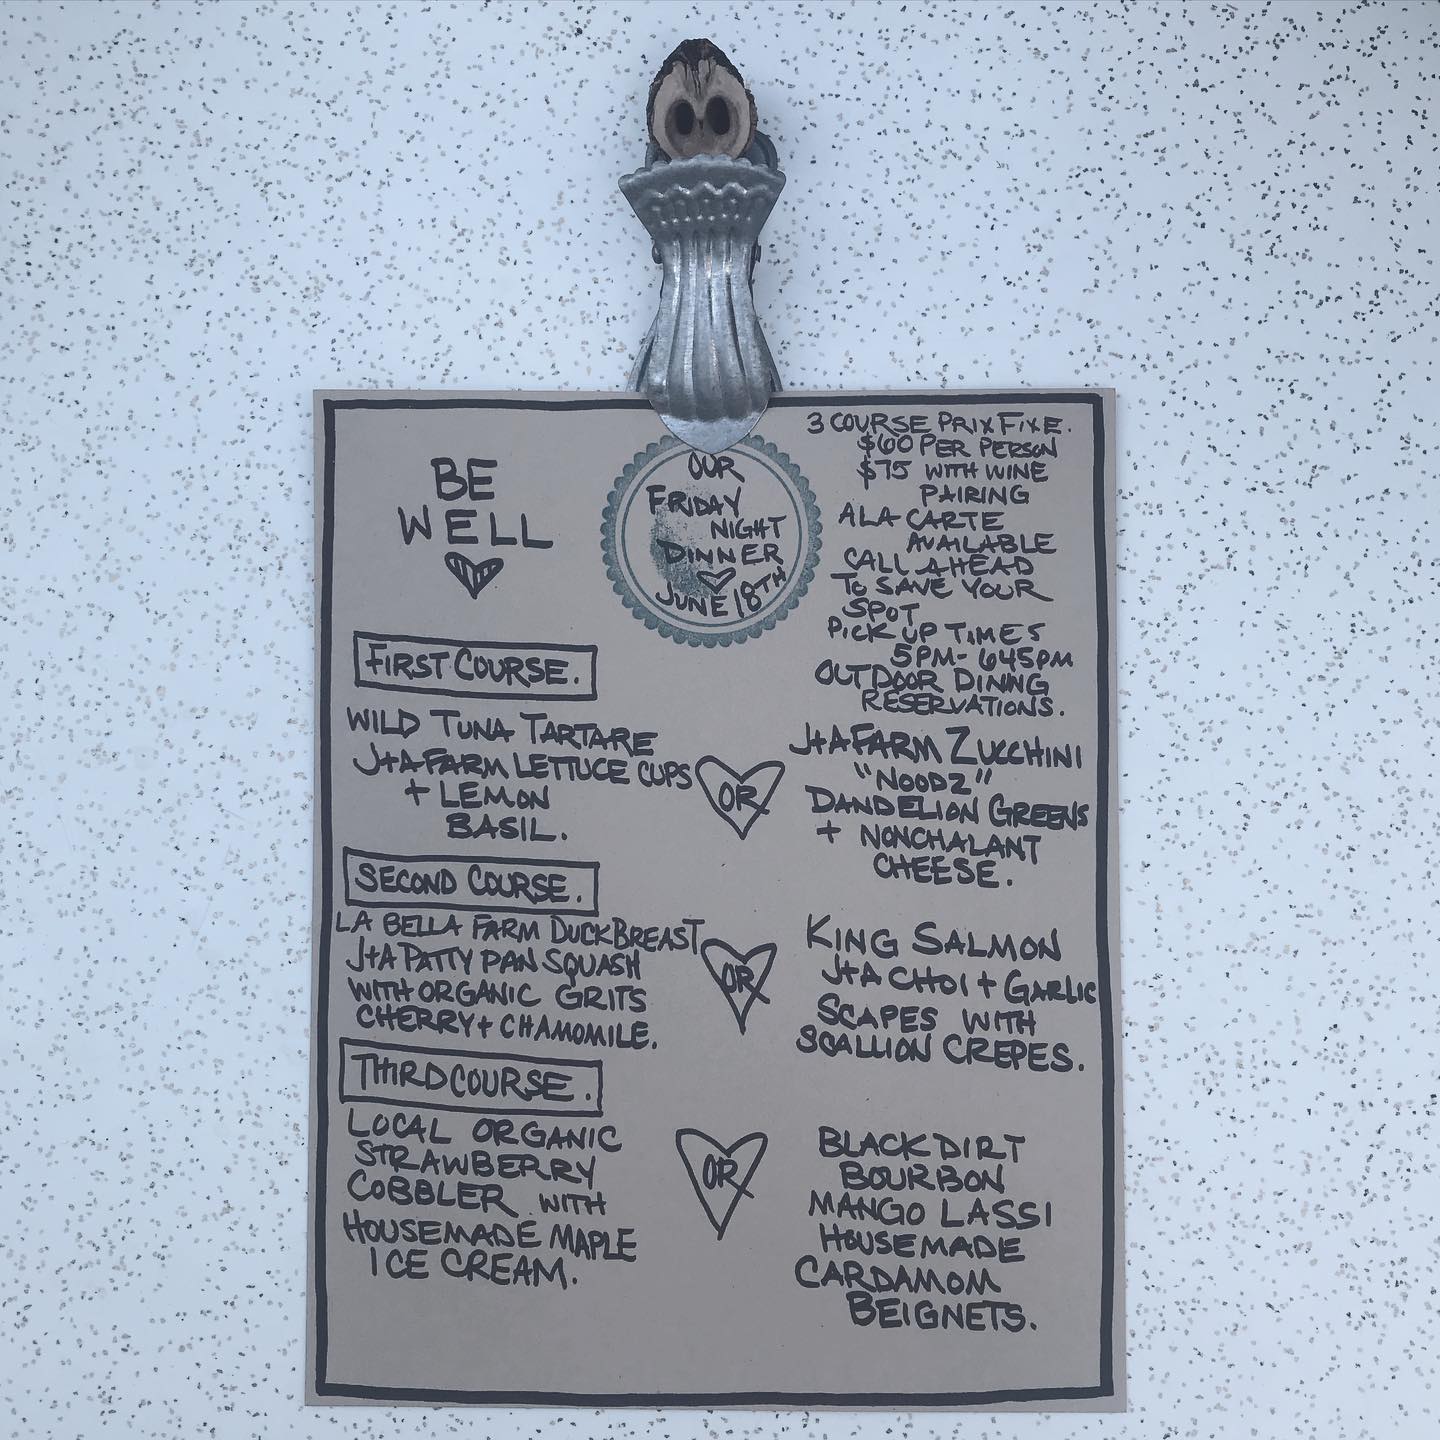 BE
WELL
OUR
FRIDAY
NIGHT
DINNER
JUNE 18TH
3 COURSE PRIX FIXE.
$60 PER PERSON
$75 WITH WINE
PAIRING
A LA CARTE
AVAILABLE
CALL AHEAD
TO SAVE YOUR
SPOT
PICK UP TIMES
5PM- 645PM
OUTDOOR DINING
RESERVATIONS.
FIRST COURSE.
WILD TUNA TARTARE
J+A FARM LETTUCE CUPS
+ LEMON
BASIL.
OR
J+A FARM ZUCCHINI
"NOODZ"
DANDELION GREENS
+ NONCHALANT
CHEESE.
SECOND COURSE.
LA BELLA FARM DUCK BREAST
J+A PATTY PAN SQUASH
WITH ORGANIC GRITS
CHERRY + CHAMOMILE.
OR
KING SALMON
J+A CHOI + GARLIC
SCAPES WITH
SCALLION CREPES.
THIRD COURSE.
LOCAL ORGANIC
STRAWBERRY
COBBLER WITH
HOUSEMADE MAPLE
ICE CREAM.
OR
BLACK DIRT
BOURBON
MANGO LASSI
HOUSEMADE
CARDAMOM
BEIGNETS.